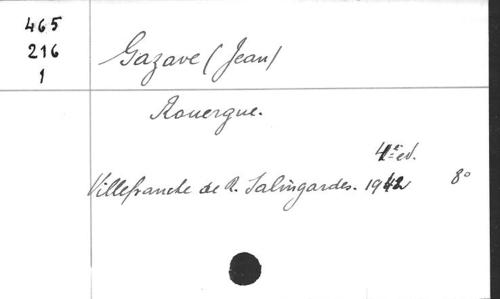 465
216
1
Gazave (Jean)
Rouergue.
4è éd.
Villefranche de R. Salingardes. 1942 8°